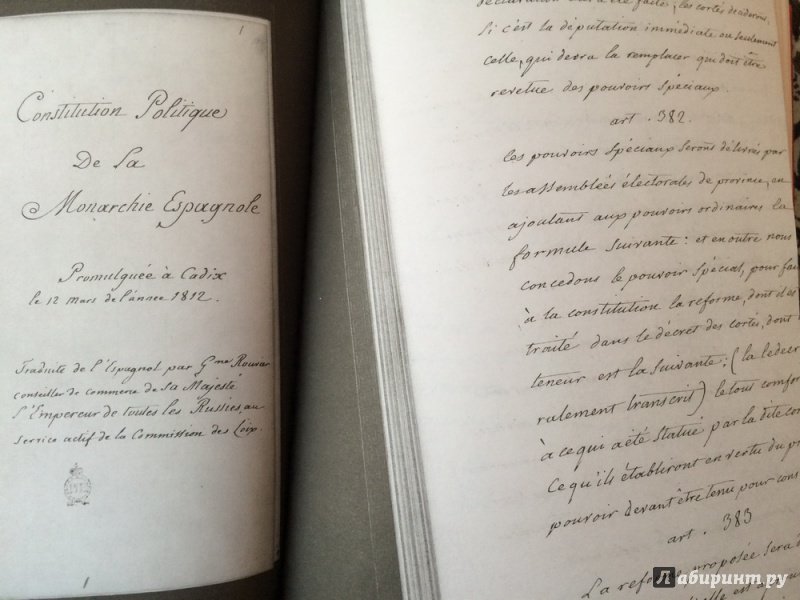 1
Constitution Politique
De La
Monarchie Espagnole
Promulguée à Cadix
le 12 Mars de l'année 1812.
Traduite de l'Espagnol par Gme
conseiller de commerce de Sa Majesté
l'Empereur de toutes les Russies, au
service actif de la Commission des Loix.
1
Si c'est la députation immédiate ou seulement
celle, qui devra la remplacer qui doit être
revetue des pouvoirs spéciaux.
art. 382.
les pouvoirs spéciaux seront délivrés par
les assemblées électorales de province, en
ajoutant aux pouvoirs ordinaires la
formule suivante: et en outre nous
concedons le pouvoir spécial, pour fai
à la constitution la reforme, dont il es
traité dans le décret des cortés, dont
teneur est la suivante: (la le decre
ralement transcrit) le tous comfor
à ce qui a été statué par la dite con
Ce qu'ils établiront en vertu du p
pouvoir devant être tenu pour cons
art. 383
La reforme proposée sera
Лабиринт.ру